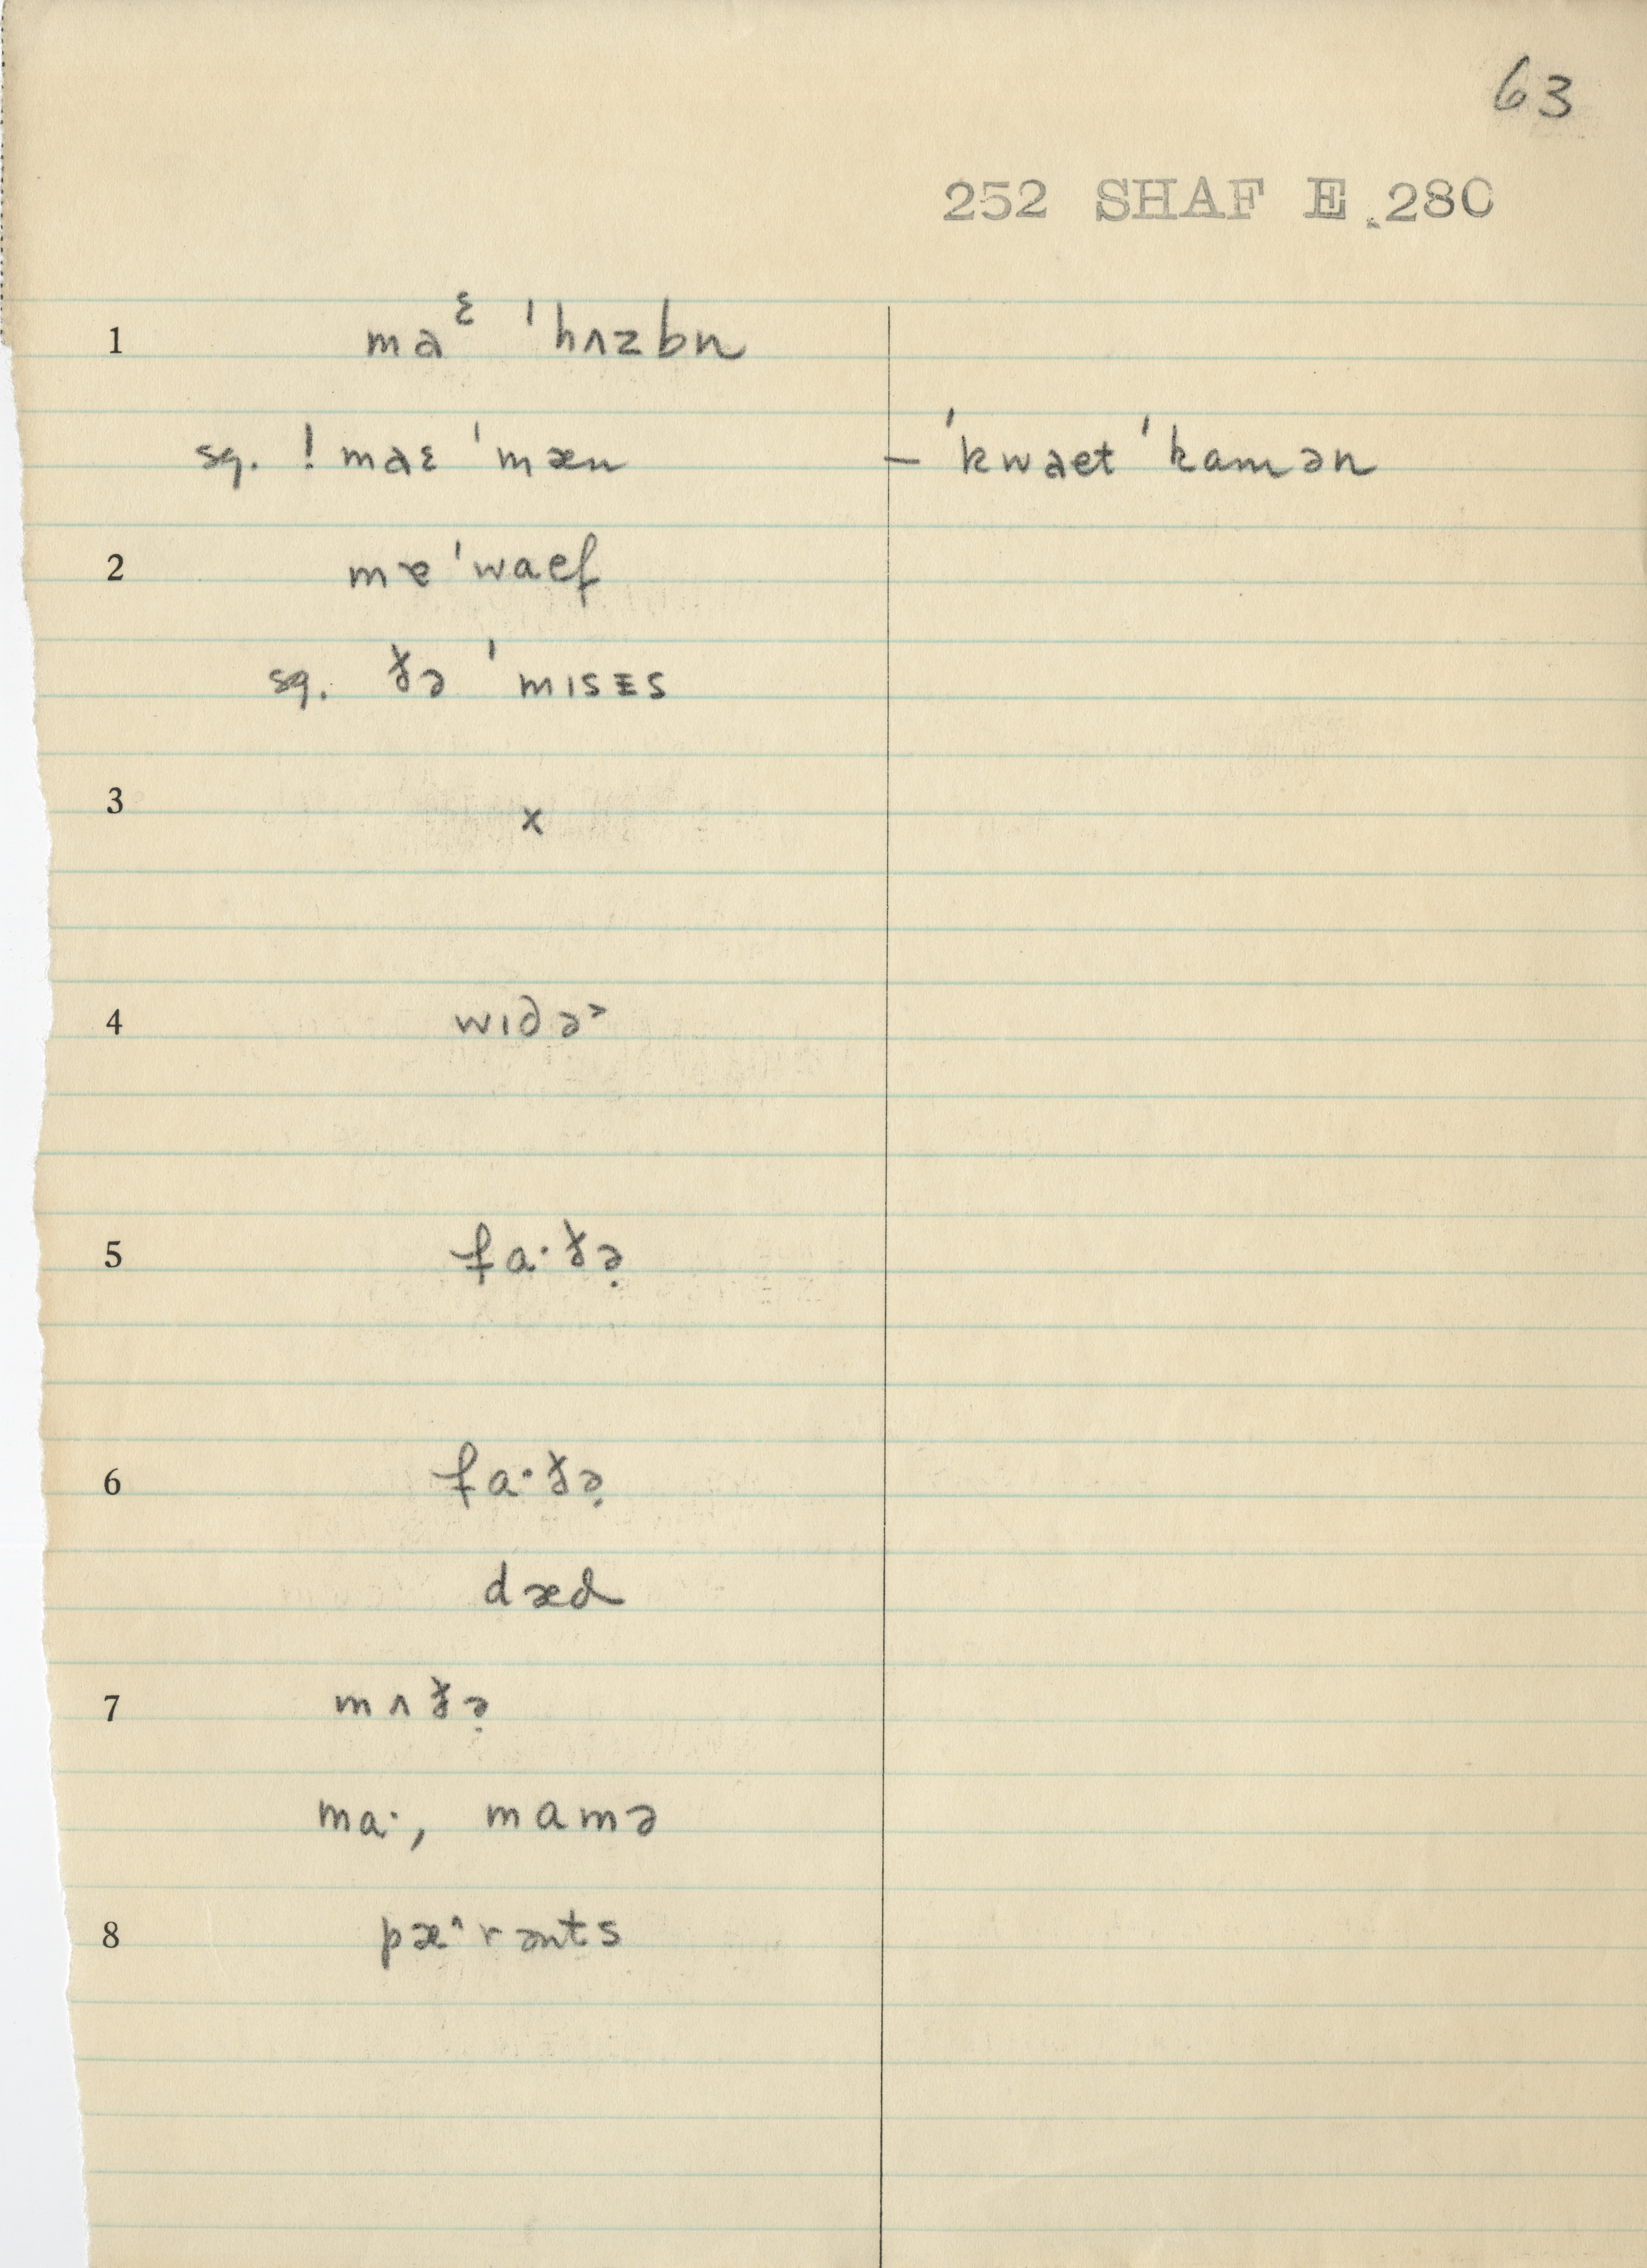 63
252 SHAF E 280
1 maᵋ ˈhʌzbn
sq. ! maɛ ˈmæn – ˈkwaet ˈkamən
2 mɐ ˈwaef
sq. ðə ˈmɪsᴇs
3 x
4 wɪdə˃
5 fa·ðə̣
6 fa·ðə̣
dæd
7 mʌðə̣
ma·, mamə
8 pæ^rənts